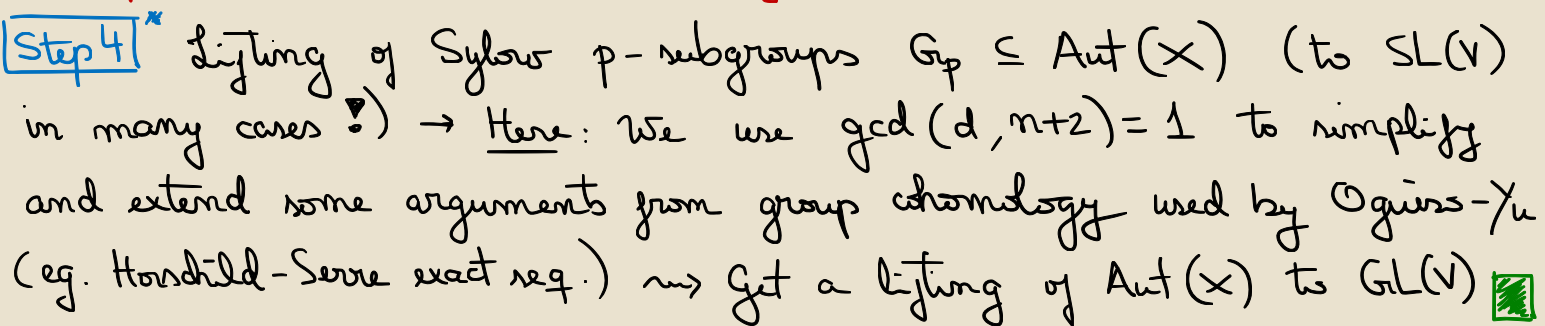 Step 4 Lifting of Sylow p-subgroups Gp ⊆ Aut(X) (to SL(V)
in many cases !) → Here: We use gcd(d,n+2)=1 to simplify
and extend some arguments from group cohomology used by Oguiso-Yu
(eg. Horschild-Serre exact seq.) ⇝ Get a lifting of Aut(X) to GL(V)